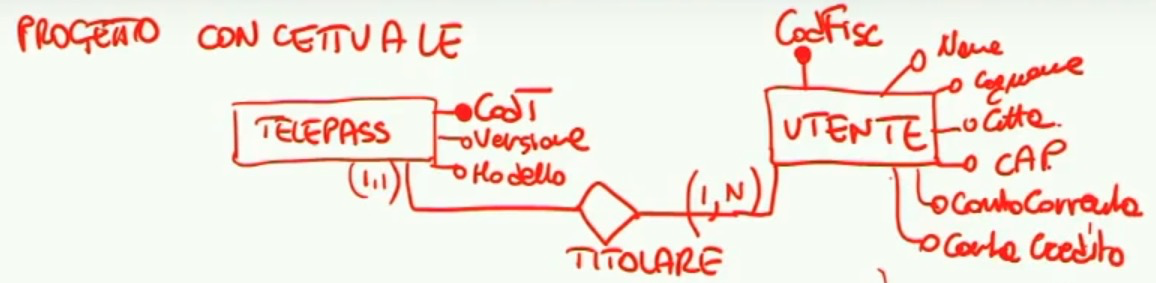 PROGETTO CONCETTUALE
CodFisc
Nome
Cognome
TELEPASS
CodT
Versione
Modello
UTENTE
Citta
CAP
(1,1)
(1,N)
ContoCorrente
Carta Credito
TITOLARE